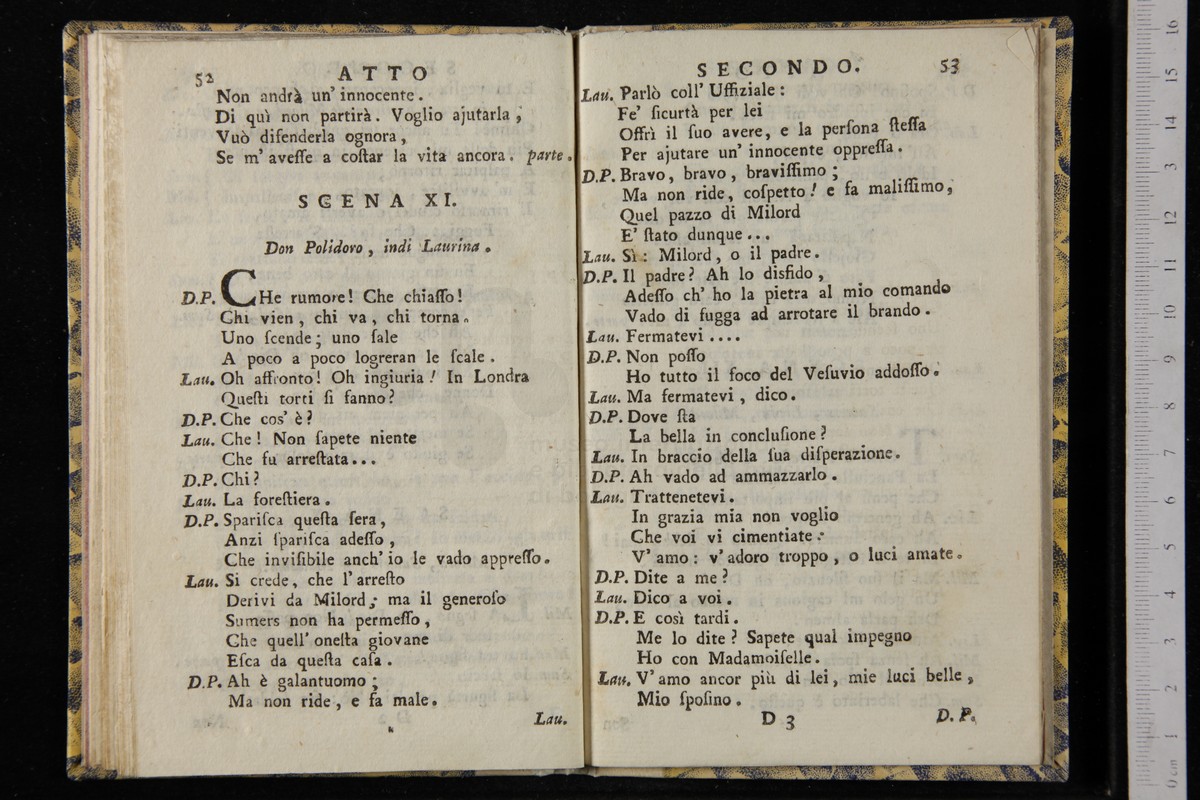 52
ATTO
Non andrà un' innocente.
Di quì non partirà. Voglio ajutarla,
Vuò difenderla ognora,
Se m' aveſſe a coſtar la vita ancora. parte.
SCENA XI.
Don Polidoro, indi Laurina.
D.P. CHe rumore! Che chiaſſo!
Chi vien, chi va, chi torna.
Uno ſcende; uno ſale
A poco a poco logreran le ſcale.
Lau. Oh affronto! Oh ingiuria! In Londra
Queſti torti ſi fanno?
D.P. Che cos' è?
Lau. Che! Non ſapete niente
Che fu arreſtata...
D.P. Chi?
Lau. La foreſtiera.
D.P. Spariſca queſta ſera,
Anzi ſpariſca adeſſo,
Che inviſibile anch' io le vado appreſſo.
Lau. Si crede, che l' arreſto
Derivi da Milord; ma il generoſo
Sumers non ha permeſſo,
Che quell' oneſta giovane
Eſca da queſta caſa.
D.P. Ah è galantuomo;
Ma non ride, e fa male.
Lau.
SECONDO.
53
Lau. Parlò coll' Uffiziale:
Fe' ſicurtà per lei
Offrì il ſuo avere, e la perſona ſteſſa
Per ajutare un' innocente oppreſſa.
D.P. Bravo, bravo, braviſſimo;
Ma non ride, coſpetto! e fa maliſſimo,
Quel pazzo di Milord
E' ſtato dunque...
Lau. Sì: Milord, o il padre.
D.P. Il padre? Ah lo disfido,
Adeſſo ch' ho la pietra al mio comando
Vado di fugga ad arrotare il brando.
Lau. Fermatevi....
D.P. Non poſſo
Ho tutto il foco del Veſuvio addoſſo.
Lau. Ma fermatevi, dico.
D.P. Dove ſta
La bella in concluſione?
Lau. In braccio della ſua diſperazione.
D.P. Ah vado ad ammazzarlo.
Lau. Trattenetevi.
In grazia mia non voglio
Che voi vi cimentiate:
V' amo: v' adoro troppo, o luci amate.
D.P. Dite a me?
Lau. Dico a voi.
D.P. E così tardi.
Me lo dite? Sapete qual impegno
Ho con Madamoiſelle.
Lau. V' amo ancor più di lei, mie luci belle,
Mio ſpoſino.
D 3
D. P.